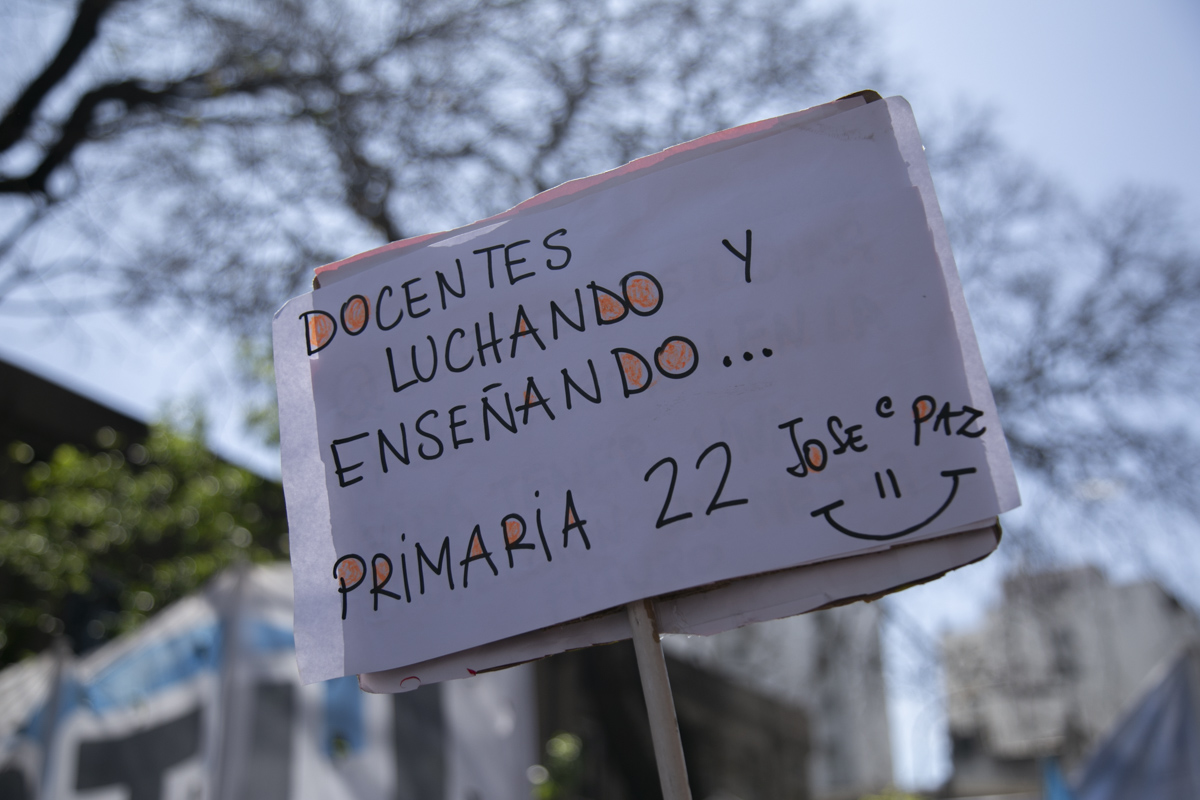 DOCENTES
LUCHANDO Y
ENSEÑANDO...
PRiMARiA 22 JOSE C PAZ